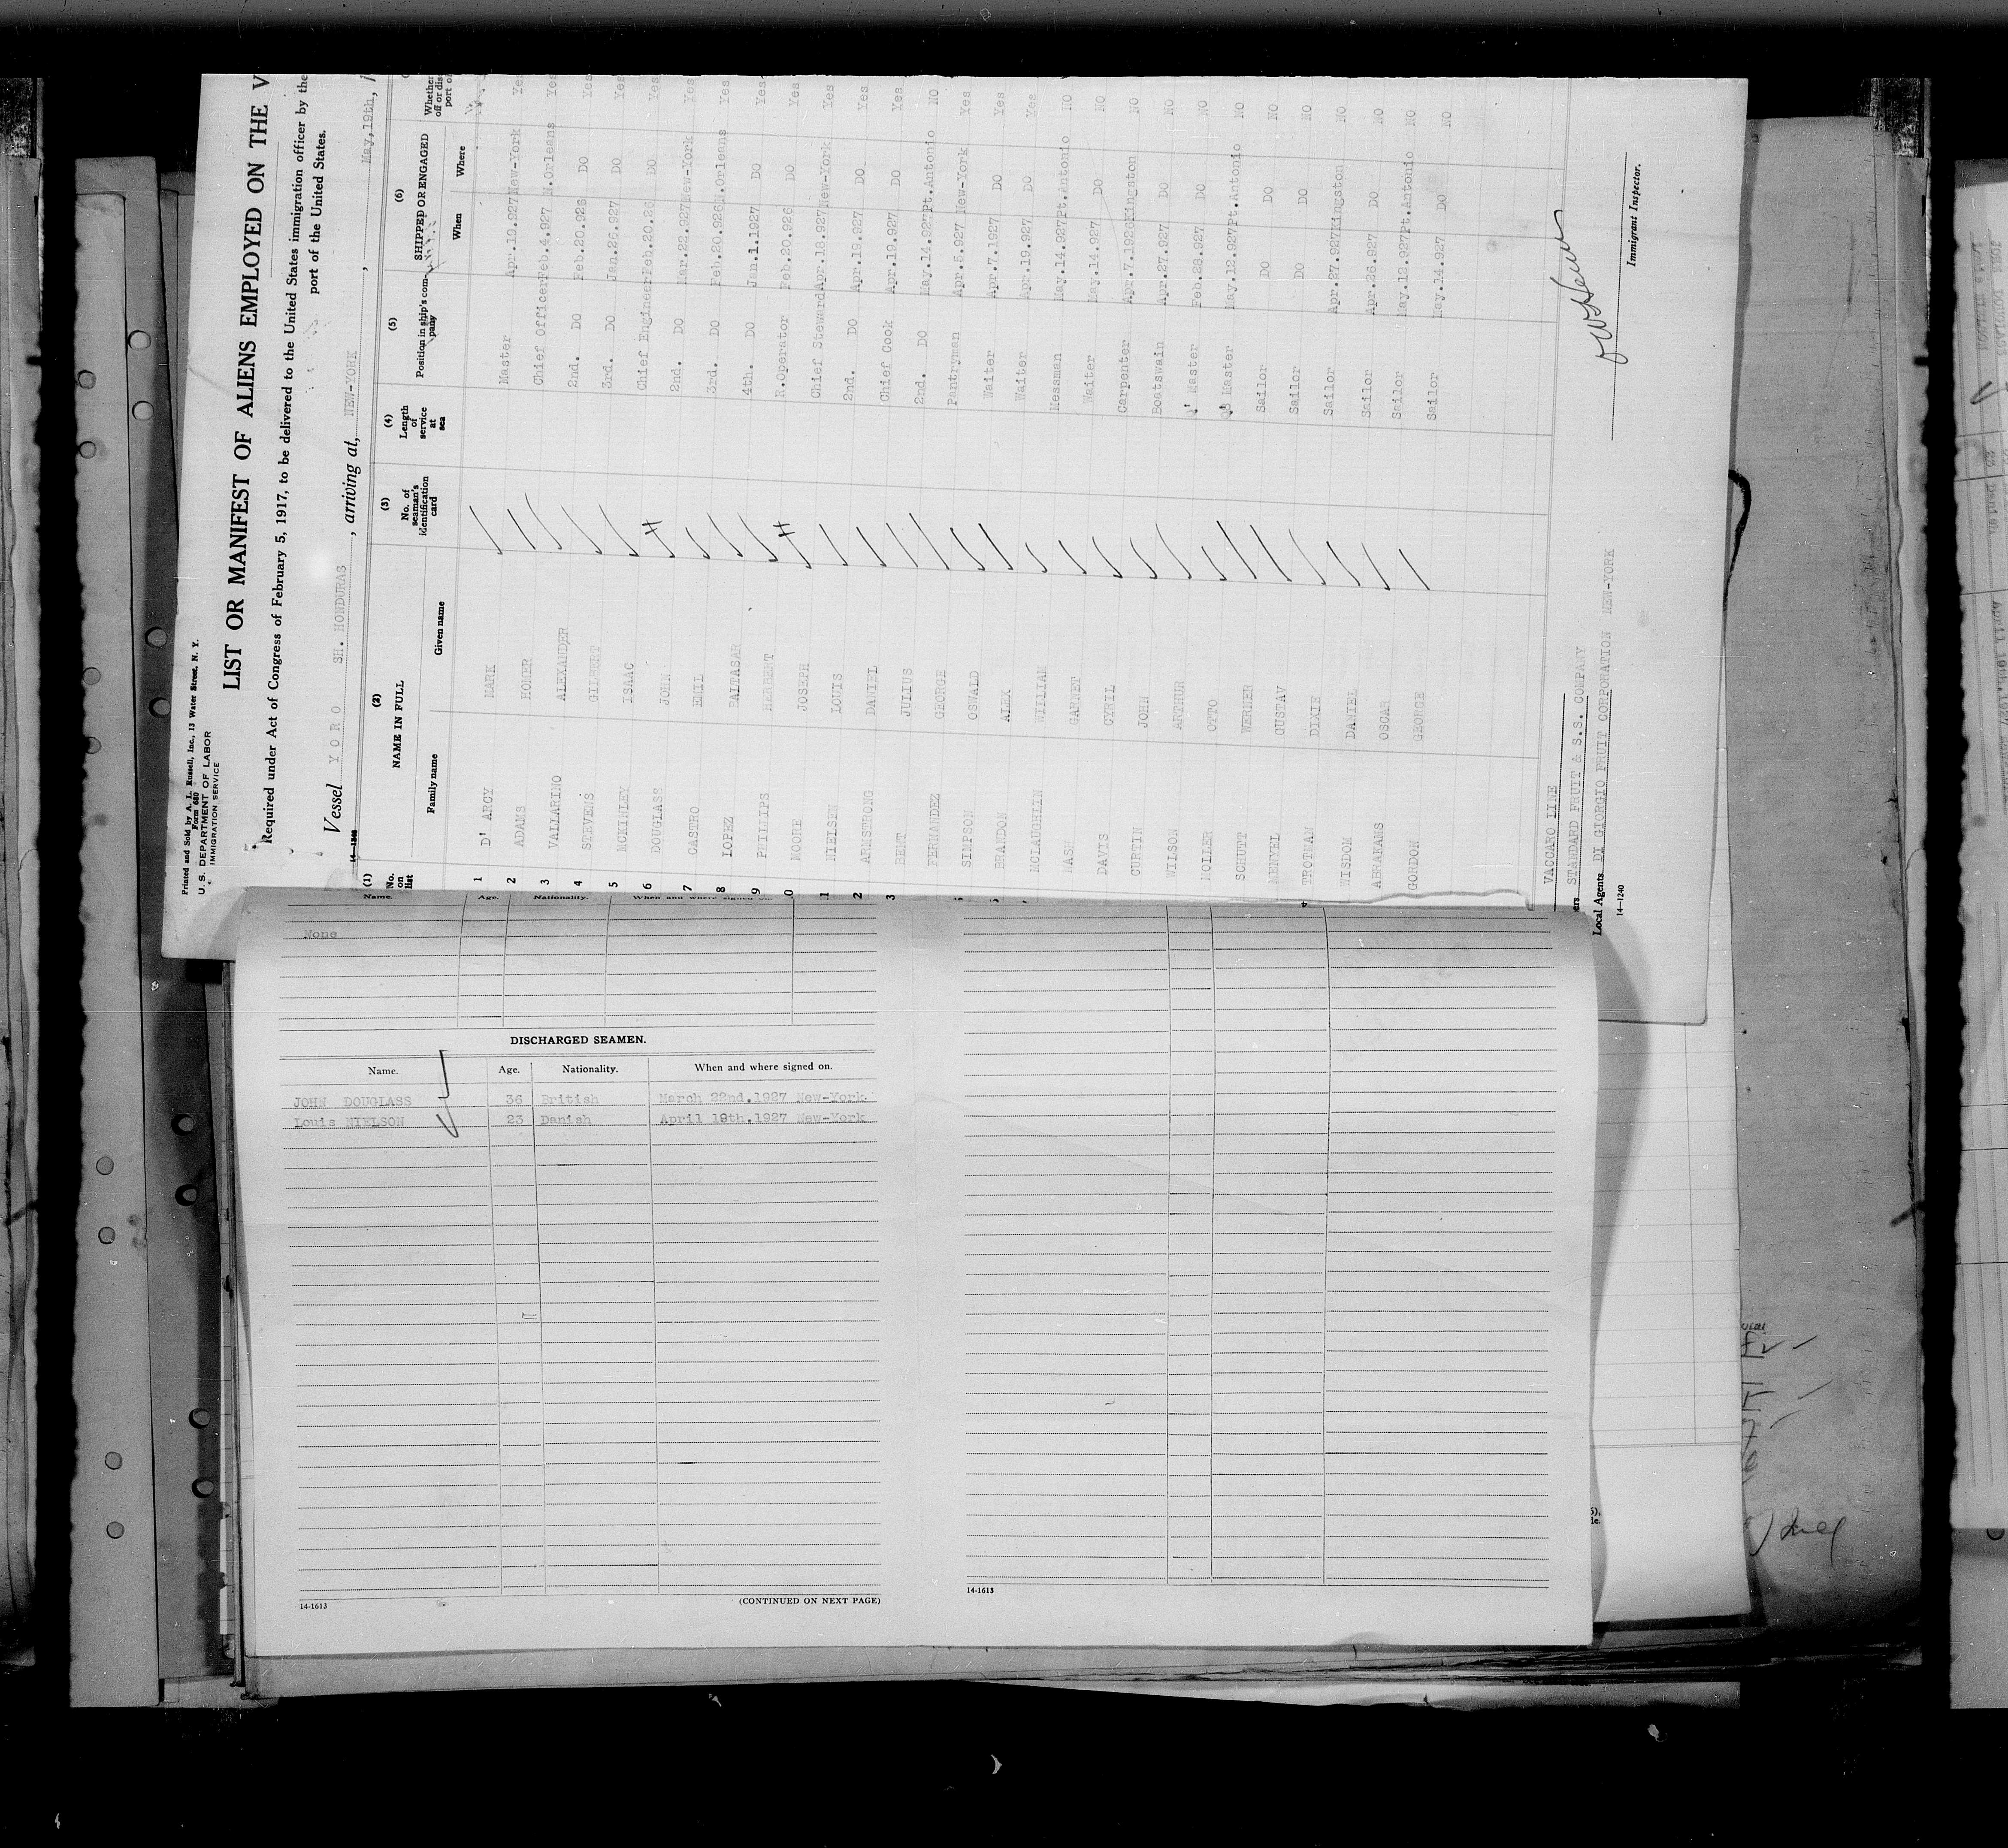 Printed and Sold by A. L. Russell, Inc., 13 Water Street, N. Y.
Form 680
U. S. DEPARTMENT OF LABOR
IMMIGRATION SERVICE
LIST OR MANIFEST OF ALIENS EMPLOYED ON THE V
Required under Act of Congress of February 5, 1917, to be delivered to the United States immigration officer by the
port of the United States.
Vessel Y O R O SH. HONDURAS , arriving at, NEW-YORK , May,19th,
14—1240
(1) No. on list (2) NAME IN FULL Family name Given name (3) No. of seaman's identification card (4) Length of service at sea (5) Position in ship's company (6) SHIPPED OR ENGAGED When Where Whether
off or dis
port of
1 D' ARCY MARK Master Apr.19.927 New-York Yes
2 ADAMS HOMER Chief Officer Feb.4.927 N.Orleans Yes
3 VALLARINO ALEXANDER 2nd. DO Feb.20.926 DO Yes
4 STEVENS GILBERT 3rd. DO Jan.26.927 DO Yes
5 MCKINLEY ISAAC Chief Engineer Feb.20.26 DO Yes
6 DOUGLASS JOHN 2nd. DO Mar.22.927 New-York Yes
7 CASTRO EMIL 3rd. DO Feb.20.926 N.Orleans Yes
8 LOPEZ BALTASAR 4th. DO Jan.1.1927 DO Yes
9 PHILLIPS HERBERT R.Operator Feb.20.926 DO Yes
0 MOORE JOSEPH Chief Steward Apr.18.927 New-York Yes
1 NIELSEN LOUIS 2nd. DO Apr.18.927 DO Yes
2 ARMSTRONG DANIEL Chief Cook Apr.19.927 DO Yes
3 BENT JULIUS 2nd. DO May.14.927 Pt.Antonio NO
FERNANDEZ GEORGE Pantryman Apr.5.927 New-York Yes
SIMPSON OSWALD Waiter Apr.7.1927 DO Yes
BRANDON ALEX Waiter Apr.19.927 DO Yes
MCLAUGHLIN WILLIAM Messman May.14.927 Pt.Antonio NO
NASH GARNET Waiter May.14.927 DO NO
DAVIS CYRIL Carpenter Apr.7.1926 Kingston NO
CURTIN JOHN Boatswain Apr.27.927 DO NO
WILSON ARTHUR Q' Master Feb.28.927 DO NO
MOLLER OTTO Q' Master May.12.927 Pt.Antonio NO
SCHUTT WERNER Sailor DO DO NO
MENVEL GUSTAV Sailor DO DO NO
TROTMAN DIXIE Sailor Apr.27.927 Kingston NO
WISDOM DANIEL Sailor Apr.26.927 DO NO
ABRAHAMS OSCAR Sailor May.12.927 Pt.Antonio NO
GORDON GEORGE Sailor May.14.927 DO NO
VACCARO LINE
ers STANDARD FRUIT & S.S. COMPANY
Local Agents DI GIORGIO FRUIT CORPORATION NEW-YORK
14—1240
Immigrant Inspector.
Name. Age. Nationality. When and where signed on.
None
DISCHARGED SEAMEN.
Name. Age. Nationality. When and where signed on.
JOHN DOUGLASS 36 British March 22nd.1927 New-York.
Louis NIELSON 23 Danish April 19th.1927 New-York
14-1613
(CONTINUED ON NEXT PAGE)
14-1613